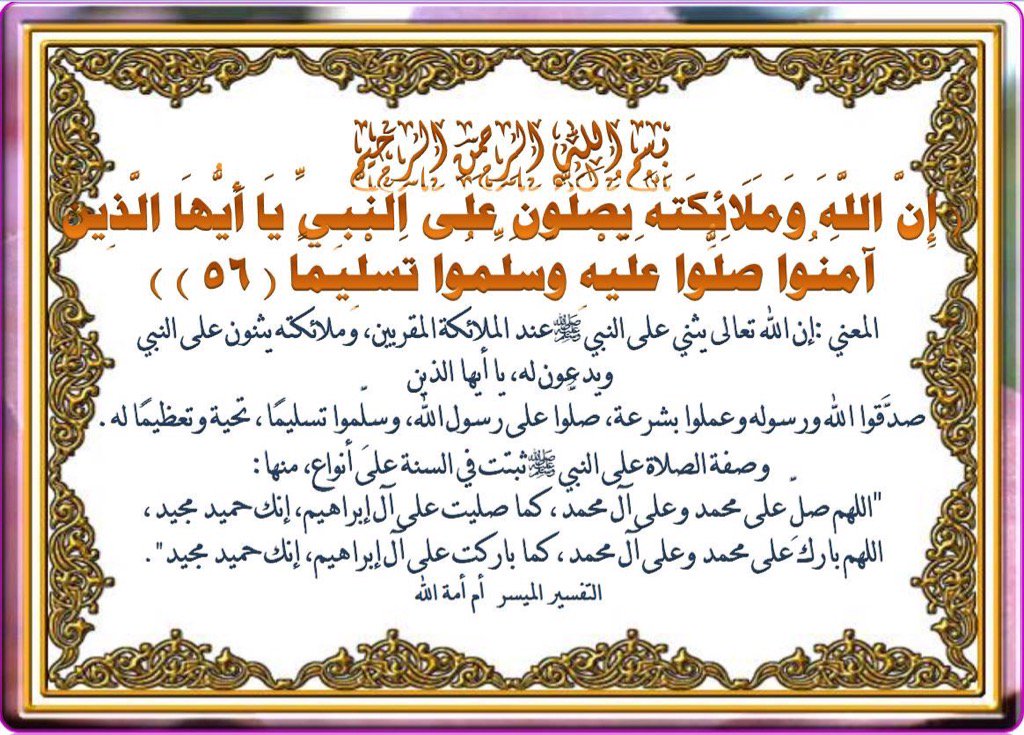 بسم الله الرحمن الرحيم
( إِنَّ اللَّهَ وَمَلَائِكَتَهُ يُصَلُّونَ عَلَى النَّبِيِّ يَا أَيُّهَا الَّذِينَ
آمنُوا صلُّوا عليهِ وسلموا تسلِيمًا ( ٥٦ ) )
المعني :إن الله تعالى يثني على النبي ﷺ عند الملائكة المقربين، وملائكته يثنون على النبي
ويدعون له، يا أيها الذين
صدَّقوا الله ورسوله وعملوا بشرعة، صلُّوا على رسول الله، وسلِّموا تسليمًا ، تحية وتعظيمًا له .
وصفة الصلاة على النبي ﷺ ثبتت في السنة على أنواع، منها:
"اللهم صلِّ على محمد وعلى آل محمد ، كما صليت على آل إبراهيم، إنك حميد مجيد ،
اللهم بارك على محمد وعلى آل محمد ، كما باركت على آل إبراهيم، إنك حميد مجيد" .
التفسير الميسر أم أمة الله